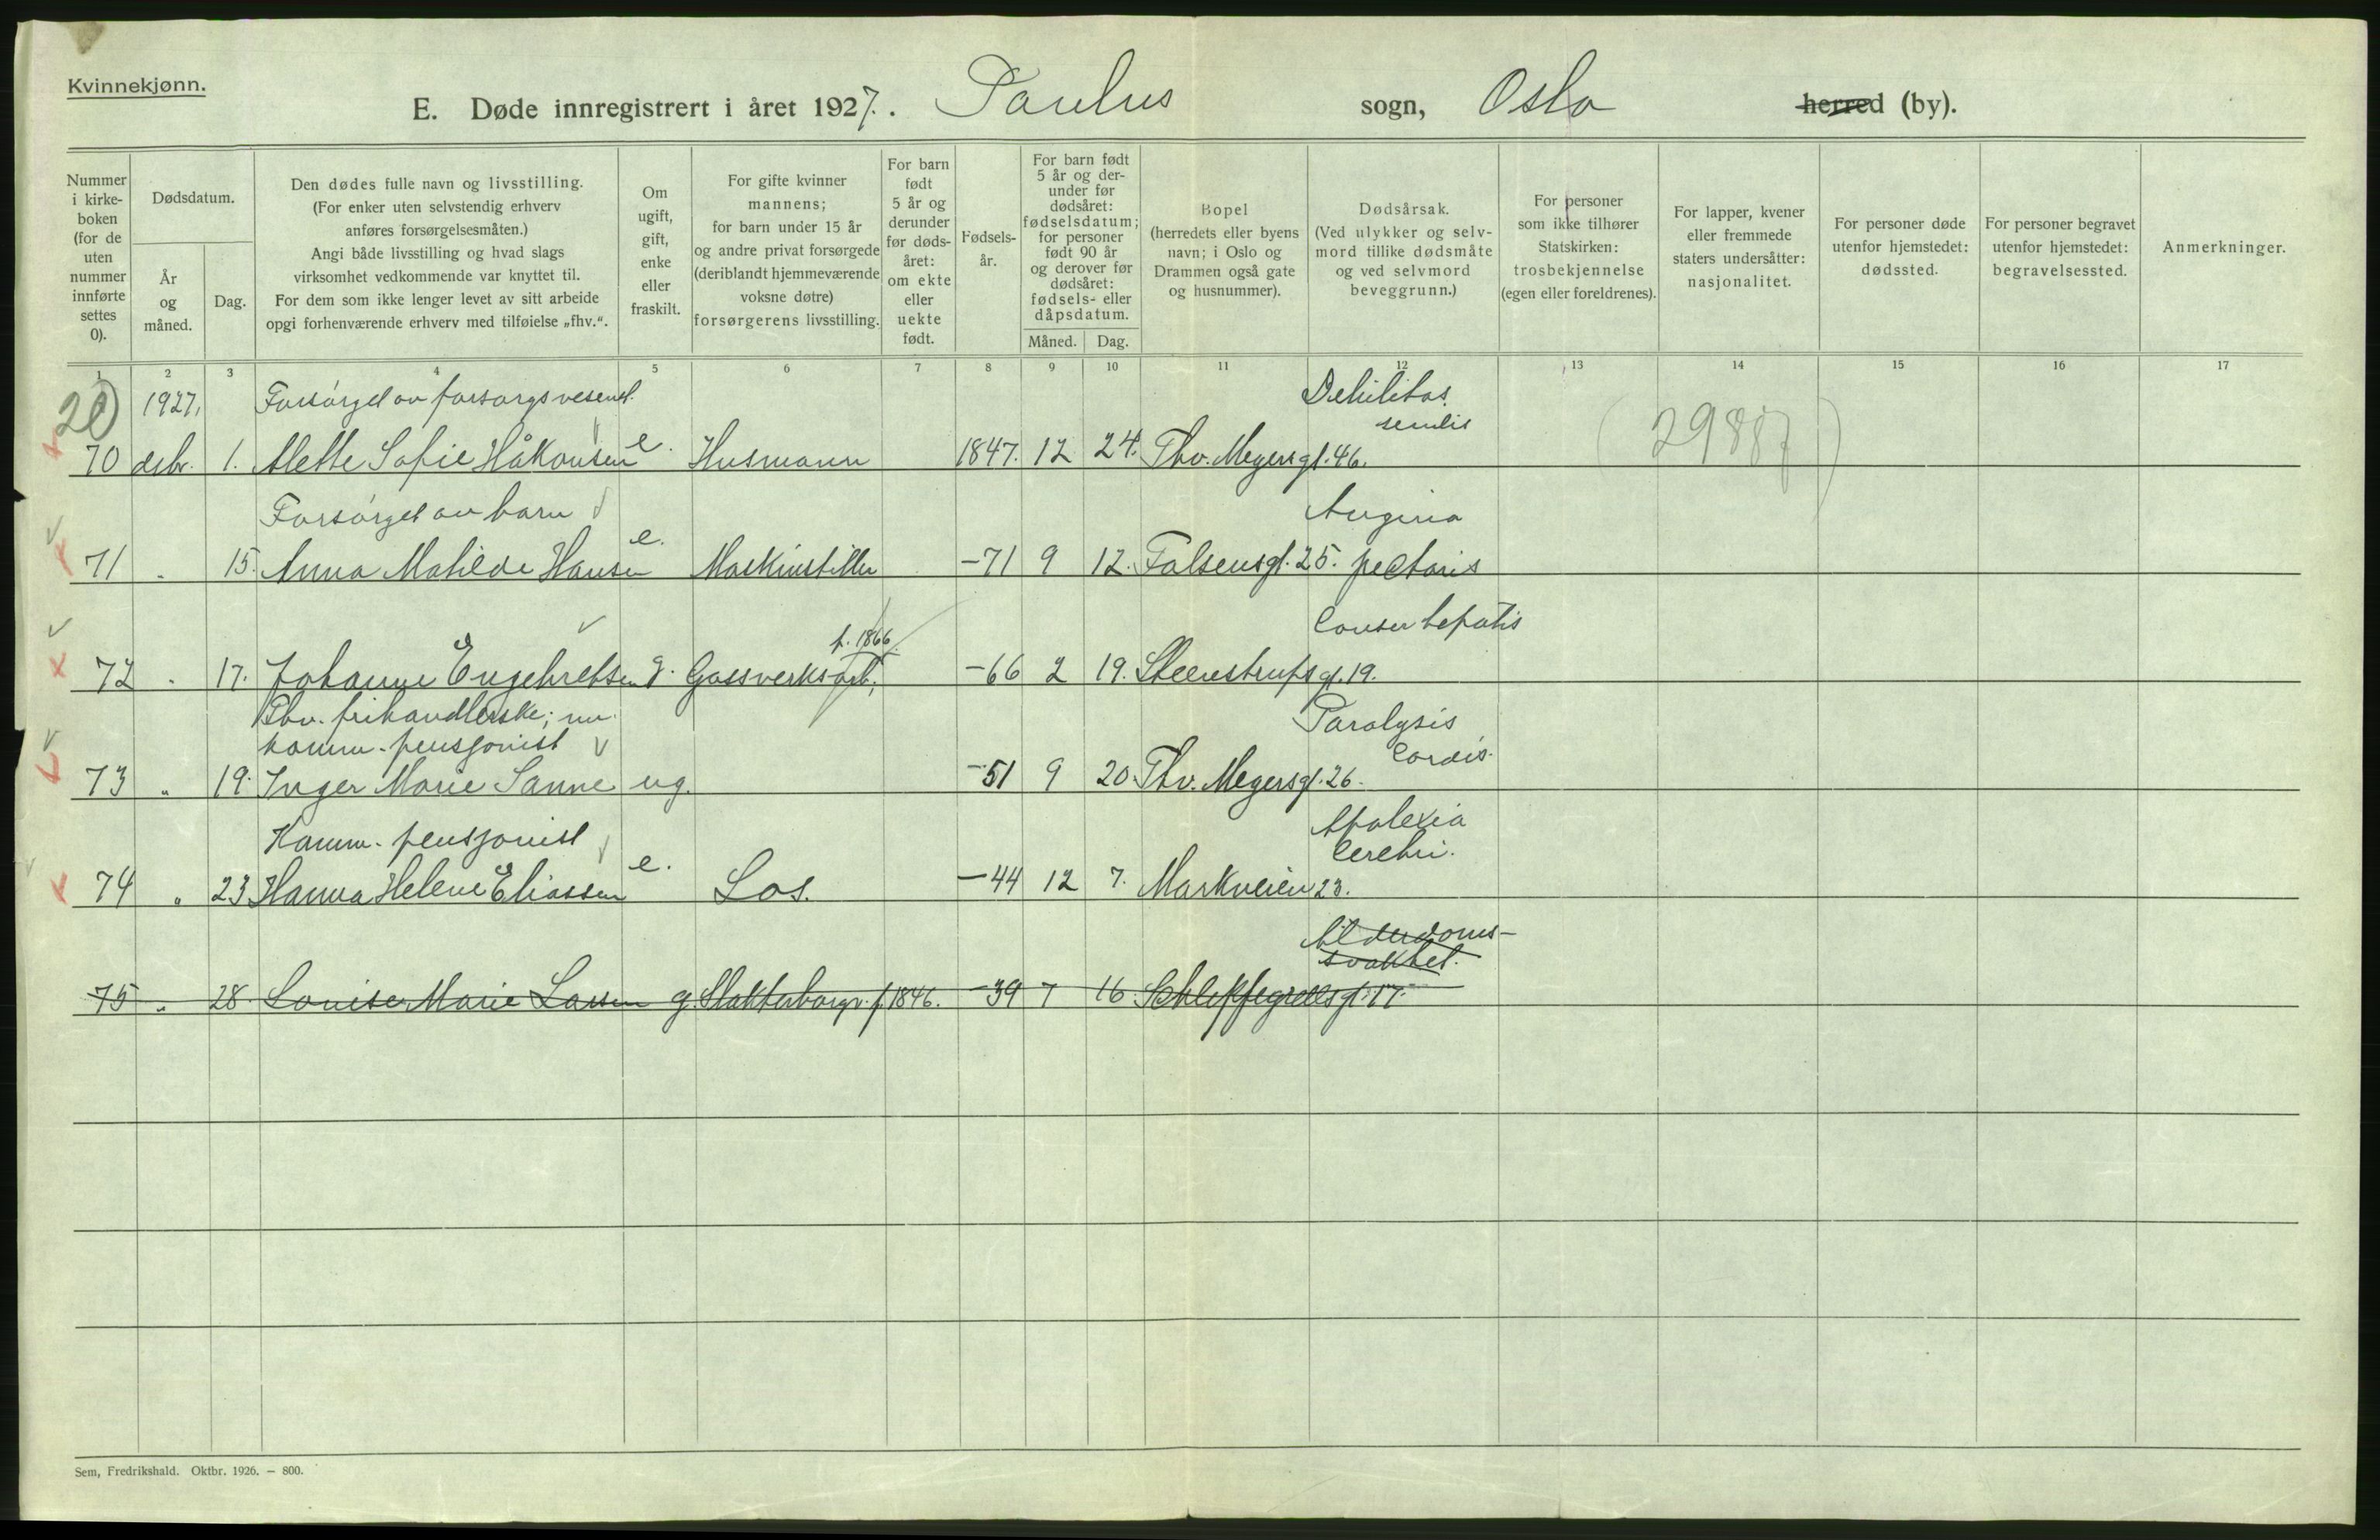 Kvinnekjønn.
E. Døde innregistrert i året 1927. Paulus sogn, Oslo herred (by).
Nummer i kirke-boken (for de uten nummer innførte settes 0).
Dødsdatum.
År og måned.
Dag.
Den dødes fulle navn og livsstilling.
(For enker uten selvstendig erhverv anføres forsørgelsesmåten.)
Angi både livsstilling og hvad slags virksomhet vedkommende var knyttet til.
For dem som ikke lenger levet av sitt arbeide opgi forhenværende erhverv med tilføielse „fhv.“.
Om ugift, gift, enke eller fraskilt.
For gifte kvinner mannens; for barn under 15 år og andre privat forsørgede (deriblandt hjemmeværende voksne døtre) forsørgerens livsstilling.
For barn født 5 år og derunder før døds-året: om ekte eller uekte født.
Fødsels-år.
For barn født 5 år og der-under før dødsåret: fødselsdatum; for personer født 90 år og derover før dødsåret: fødsels- eller dåpsdatum.
Måned.
Dag.
Bopel (herredets eller byens navn; i Oslo og Drammen også gate og husnummer).
Dødsårsak. (Ved ulykker og selv-mord tillike dødsmåte og ved selvmord beveggrunn.)
For personer som ikke tilhører Statskirken: trosbekjennelse (egen eller foreldrenes).
For lapper, kvener eller fremmede staters undersåtter: nasjonalitet.
For personer døde utenfor hjemstedet: dødssted.
For personer begravet utenfor hjemstedet: begravelsessted.
Anmerkninger.
1 2 3 4 5 6 7 8 9 10 11 12 13 14 15 16 17
20 1927, Forsørget av forsorgsvesenet. Debilitas senilis
70 desbr. 1. Alette Sofie Håkonsen e. Husmann 1847. 12 24. Thv. Meyersgt. 46. (29887)
Forsørget av barn Angina
71 " 15. Anna Matilde Hansen e. Maskinstiller -71 9 12. Falsensgt. 25. pectoris
f. 1866. Cancer hepatis
72 " 17. Johanne Engebretsen g. Gassverksarb. -66 2 19. Steenstrupsgt. 19.
Fhv. frihandlerske; nu Paralysis
komm. pensjonist Cordis.
73 " 19. Inger Marie Sanne ug. -51 9 20. Thv. Meyersgt. 26.
Komm. pensjonist Apolexia Cerebri.
74 " 23 Hanna Helene Eliassen e. Los. -44 12 7. Markveien 23.
Alderdoms-svakhet.
75 " 28. Louise Marie Larsen g. Slakterborgr. f. 1846. -39 7 16 Schleppegrellsgt. 17.
Sem, Fredrikshald. Oktbr. 1926. — 800.